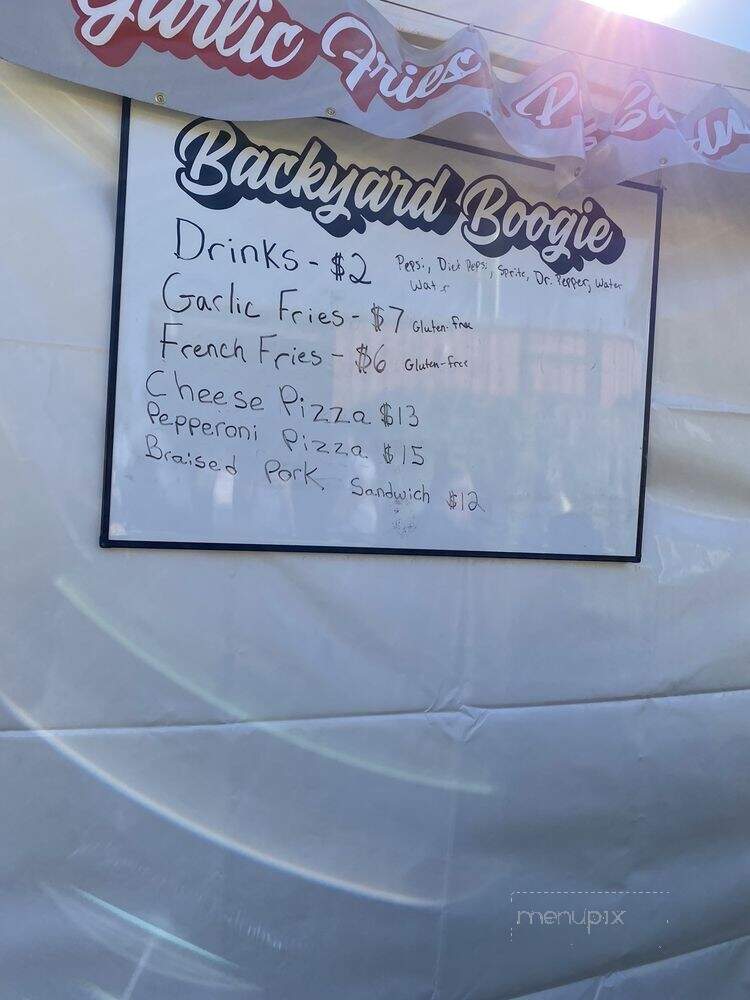 Garlic Fries
Backyard Boogie
Drinks - $2 Pepsi, Diet Pepsi, Sprite, Dr. Pepper, Water
Water
Garlic Fries - $7 Gluten-free
French Fries - $6 Gluten-free
Cheese Pizza $13
Pepperoni Pizza $15
Braised Pork Sandwich $12
menupix